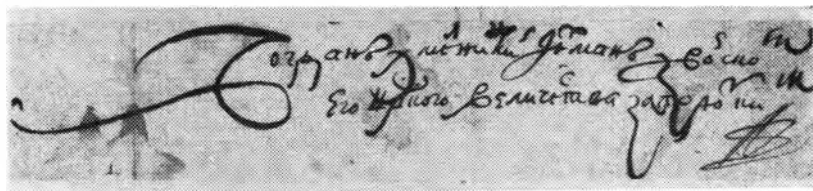 Богданъ Хмелницкий Гетманъ з Войском
Его Црского Величества запорозким